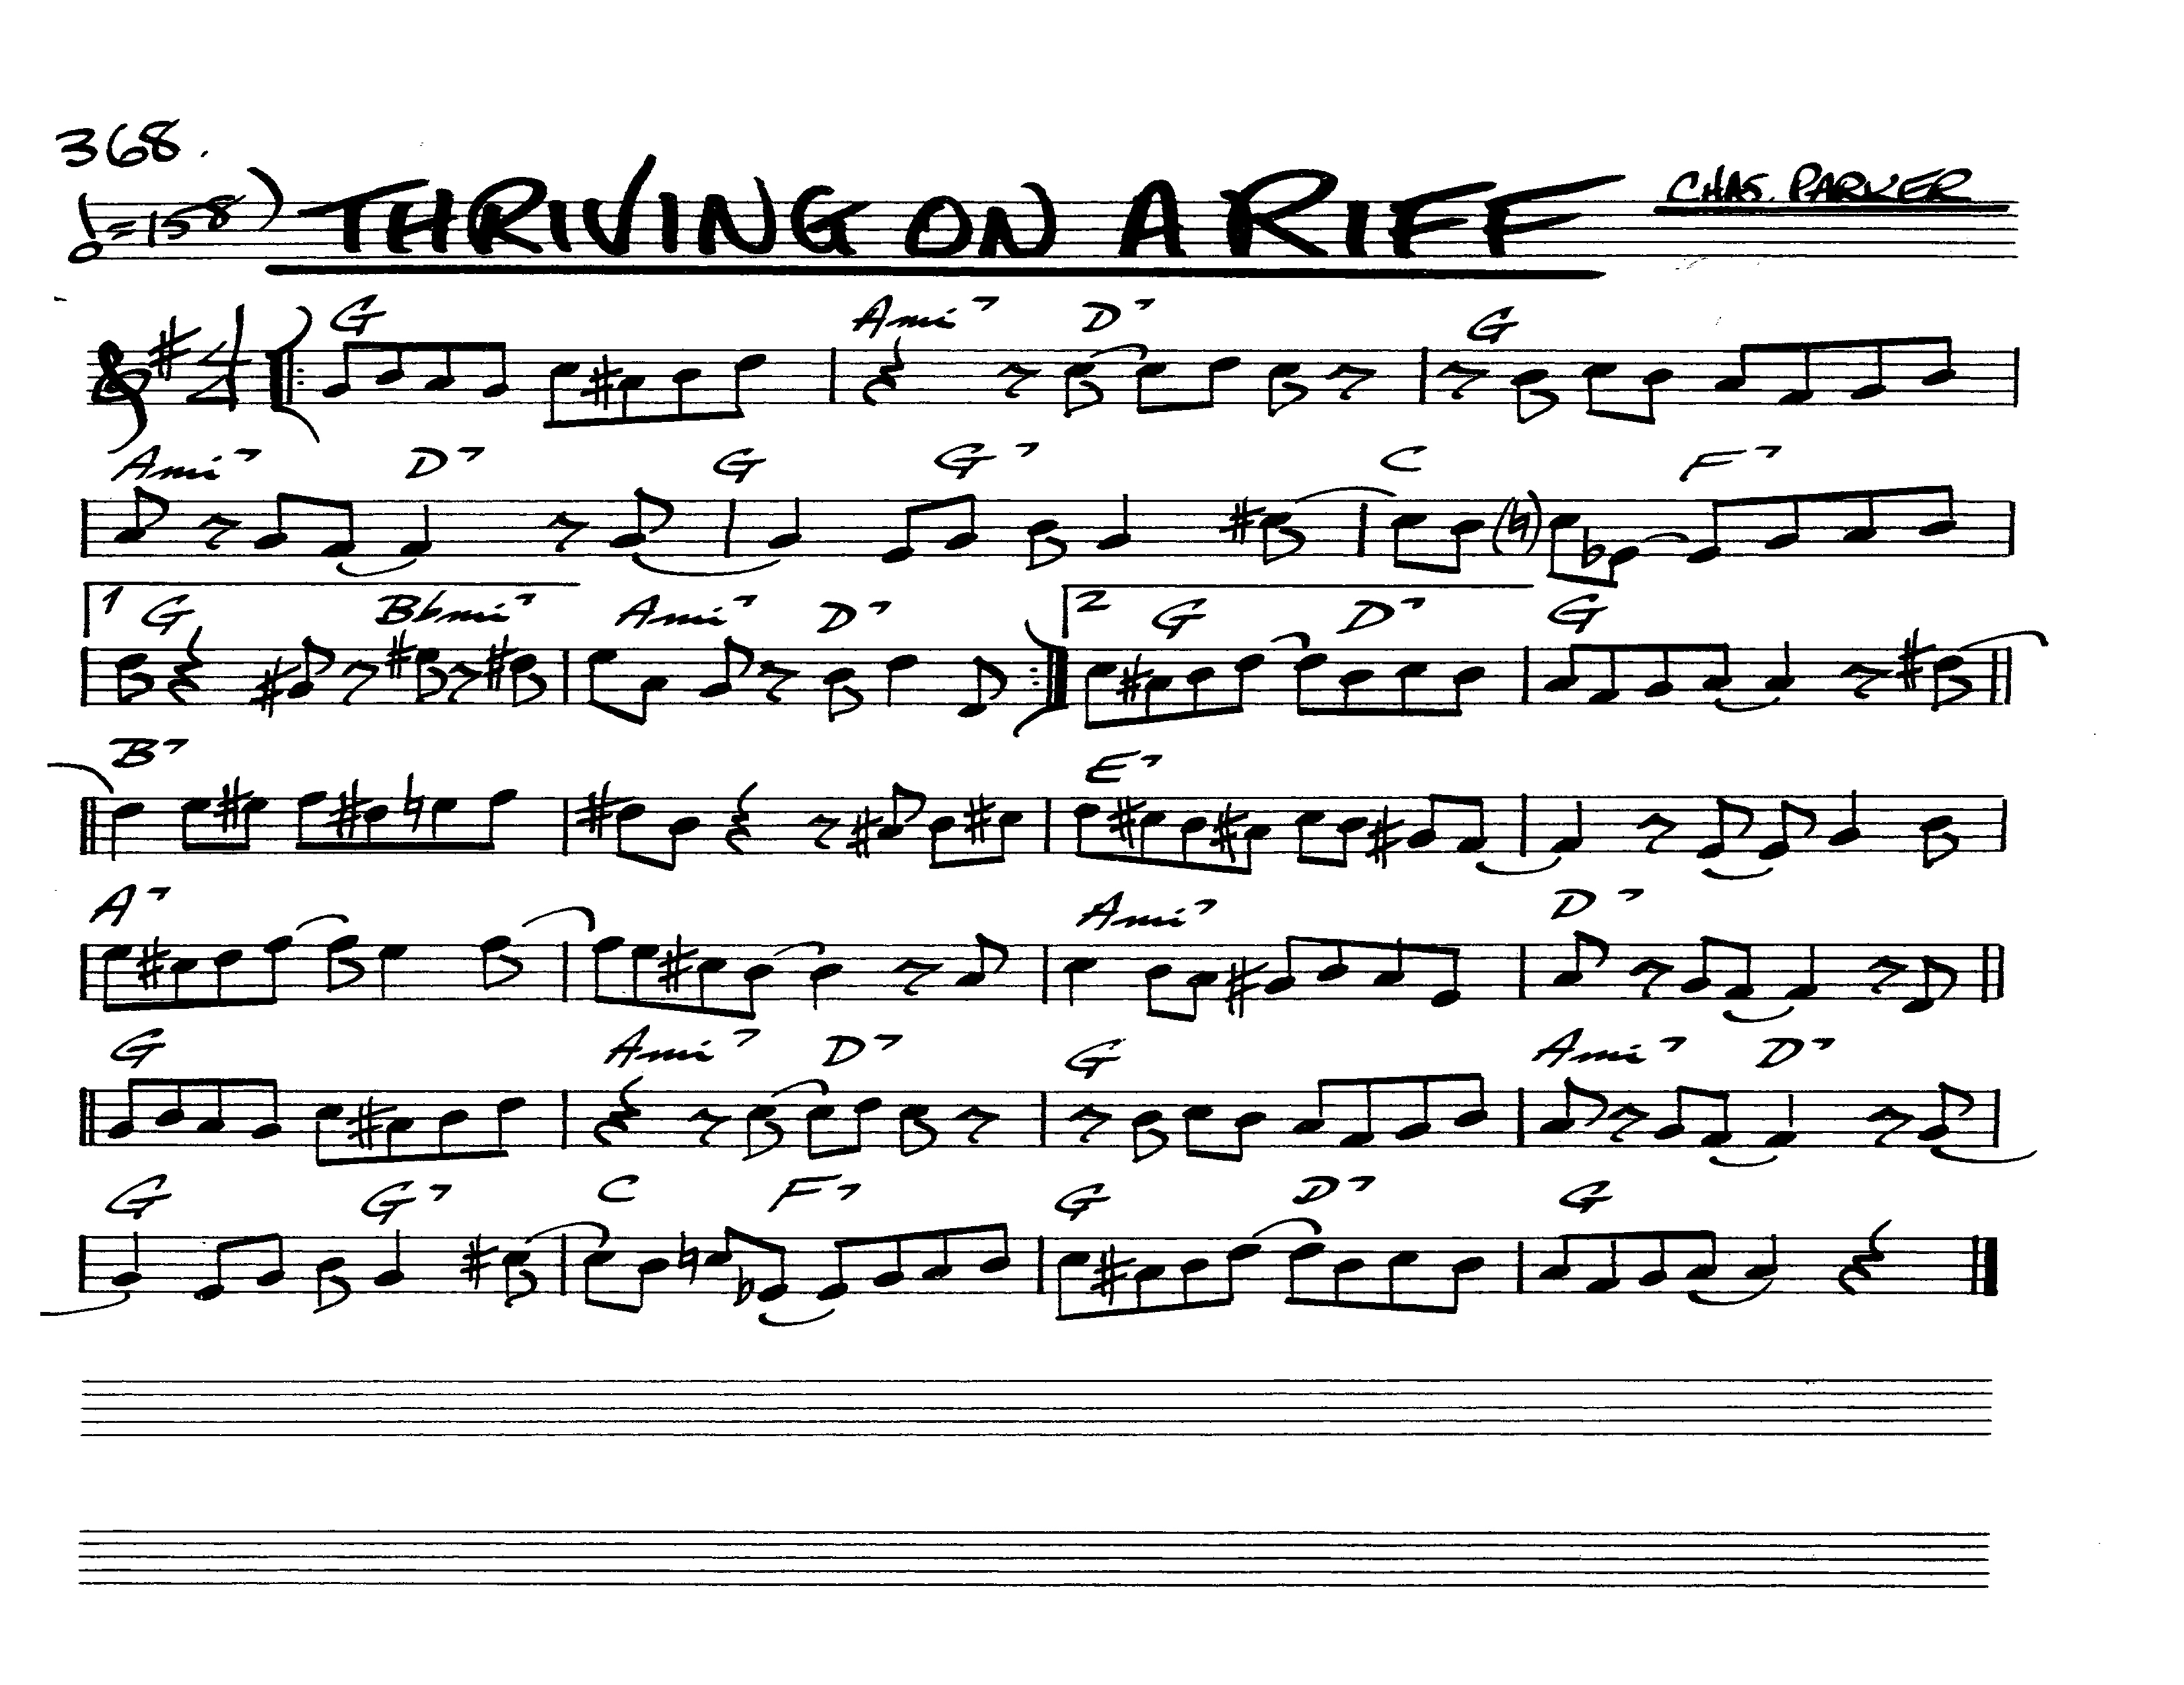 368.
𝅗𝅥=158) THRIVING ON A RIFF CHAS. PARKER
4/4 G Ami7 D7 G
Ami7 D7 G G7 C F7
1 G Bbmi7 Ami7 D7 2 G D7 G
B7 E7
A7 Ami7 D7
G Ami7 D7 G Ami7 D7
G G7 C F7 G D7 G